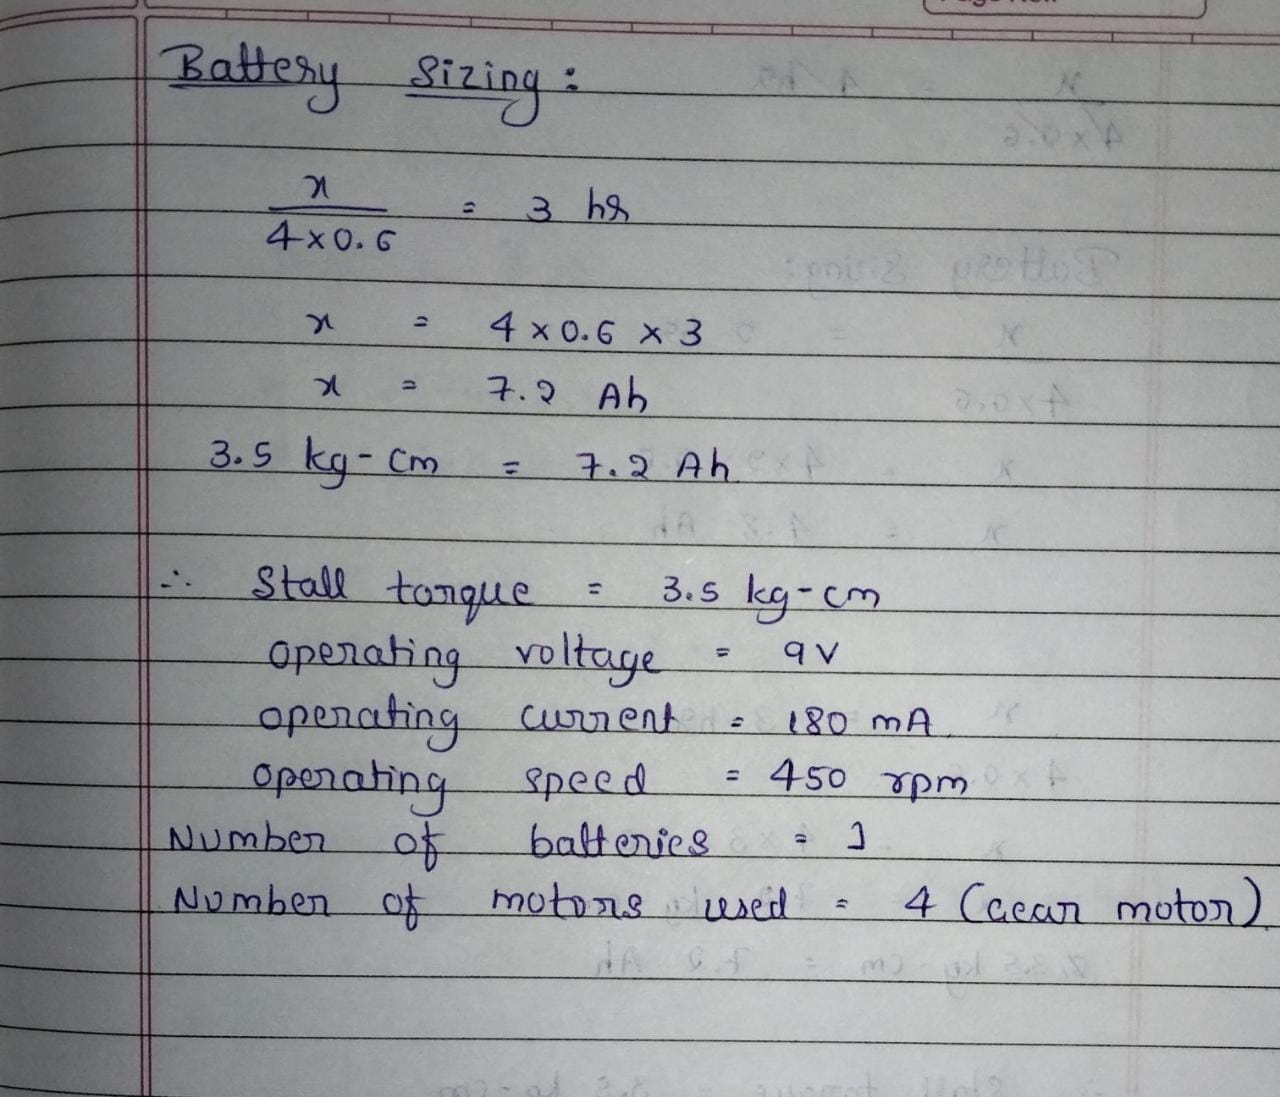 Battery Sizing :
x / 4 x 0.6 = 3 hr
x = 4 x 0.6 x 3
x = 7.2 Ah
3.5 kg-cm = 7.2 Ah
∴ Stall torque = 3.5 kg-cm
operating voltage = 9V
operating current = 180 mA
operating speed = 450 rpm
Number of batteries = 1
Number of motors used = 4 (Gear motor)